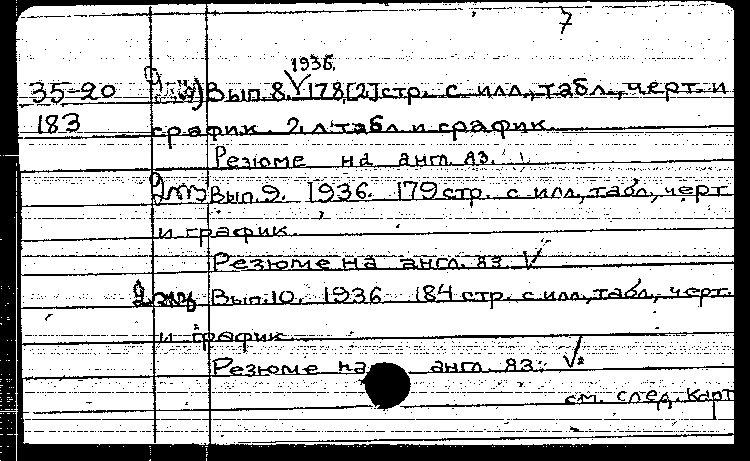 7
1936.
35-20 Вып. 8. 178,[2]стр. с илл., табл., черт. и
183 график. 2. л. табл и график.
Резюме на англ. яз.
Вып. 9. 1936. 179 стр. с илл, табл., черт
и график.
Резюме на англ. яз. √
Вып. 10. 1936 184 стр. с илл., табл., черт.
и график
Резюме на англ. яз. √
см. след. карт